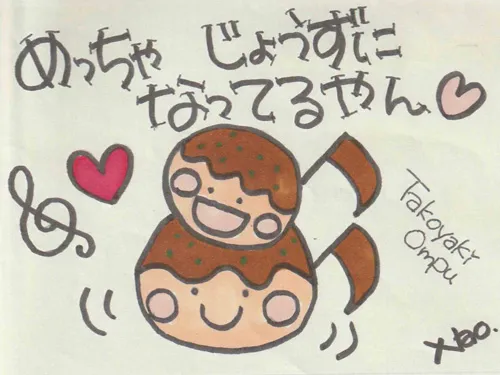 めっちゃ じょうずに
なってるやん
Takoyaki
Ompu
Nao.